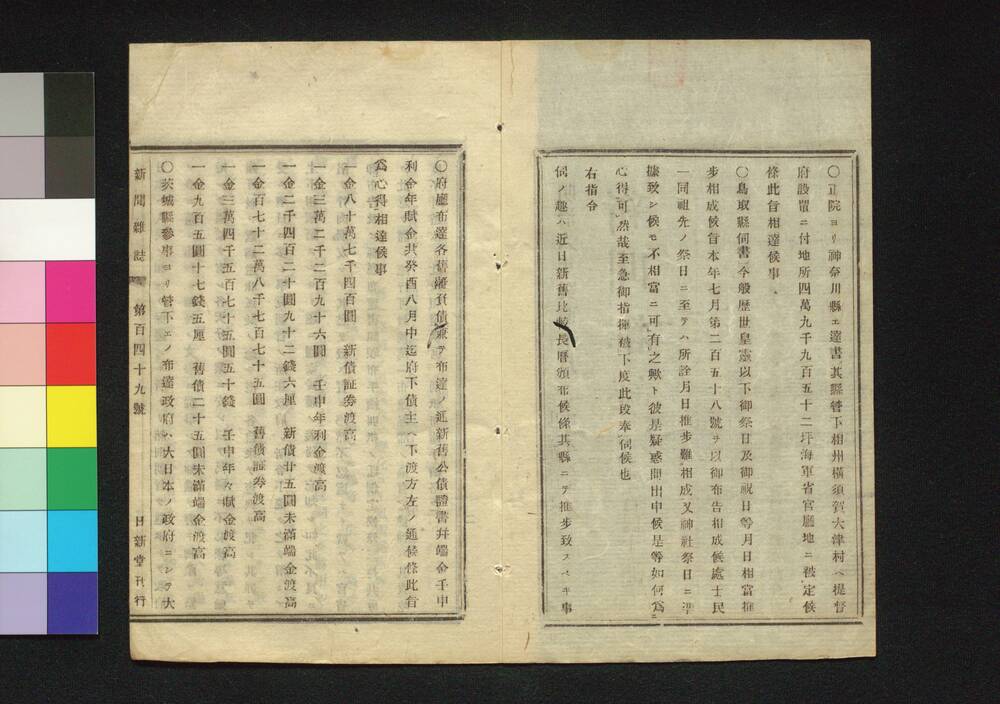 〇正院ヨリ神奈川縣エ達書其縣管下相州橫須賀大津村ヘ提督
府設置ニ付地所四萬九千九百五十二坪海軍省官廳地ニ被定候
條此旨相達候事
〇鳥取縣伺書 今般歷世皇靈以下御祭日及御祝日等月日相當推
步相成候旨本年七月第二百五十八號ヲ以御布告相成候處士民
一同祖先ノ祭日ニ至テハ所詮月日推步難相成又神社祭日ニ準
據致シ候モ不相當ニ可有之歟ト彼是疑惑問出中候是等如何爲ニ
心得可然哉至急御指揮被下度此段奉伺候也
右指令
伺ノ趣ハ近日新舊比較長曆頒布候條其縣ニテ推步致スヘキ事
〇府廳布達各舊藩負債兼テ布達ノ通新舊公債證書幷端金壬申
利金年賦金共癸酉八月中迄府下債主ヘ下渡方左ノ通候條此旨
爲心得相達候事
一金八十萬七千四百圓 新債証券渡高
一金三萬二千二百九十六圓 壬申年利金渡高
一金二千四百二十圓九十二錢六厘 新債廿五圓未滿端金渡高
一金百七十二萬八千七百七十五圓 舊債証券渡高
一金三萬四千五百七十五圓五十錢 壬申年々賦金渡高
一金九百五圓十七錢五厘 舊債二十五圓未滿端金渡高
〇茨城縣參事ヨリ管下エノ布達政府ハ大日本ノ政府ニシテ大
新聞雜誌 第百四十九號 日新堂刊行